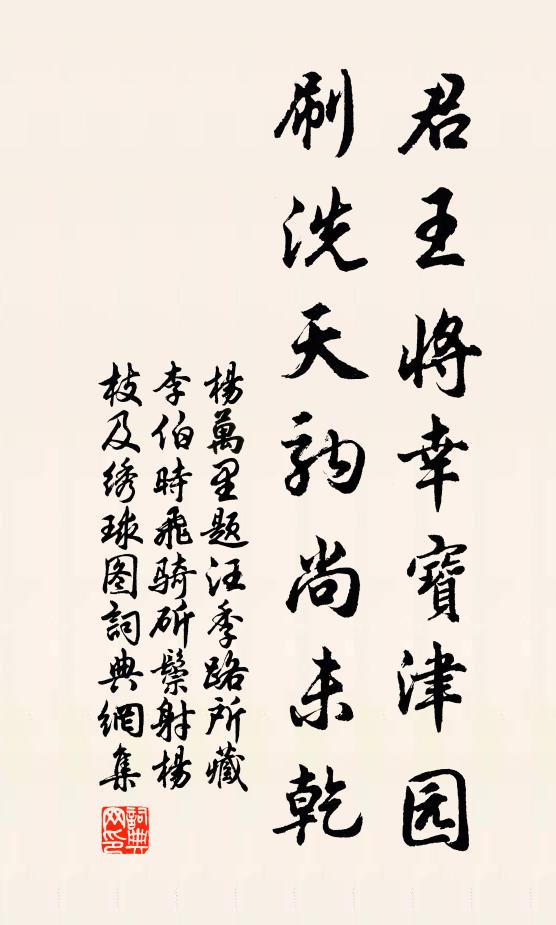 君王將幸寶津园
刷洗天駒尚未乾
楊萬里题汪季路所藏
李伯時飛骑斫鬃射楊
枝及绣球图詞典網集
詞典网印